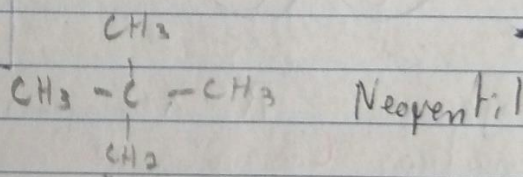 CH3
CH3 - C - CH3 Neopentil
CH2